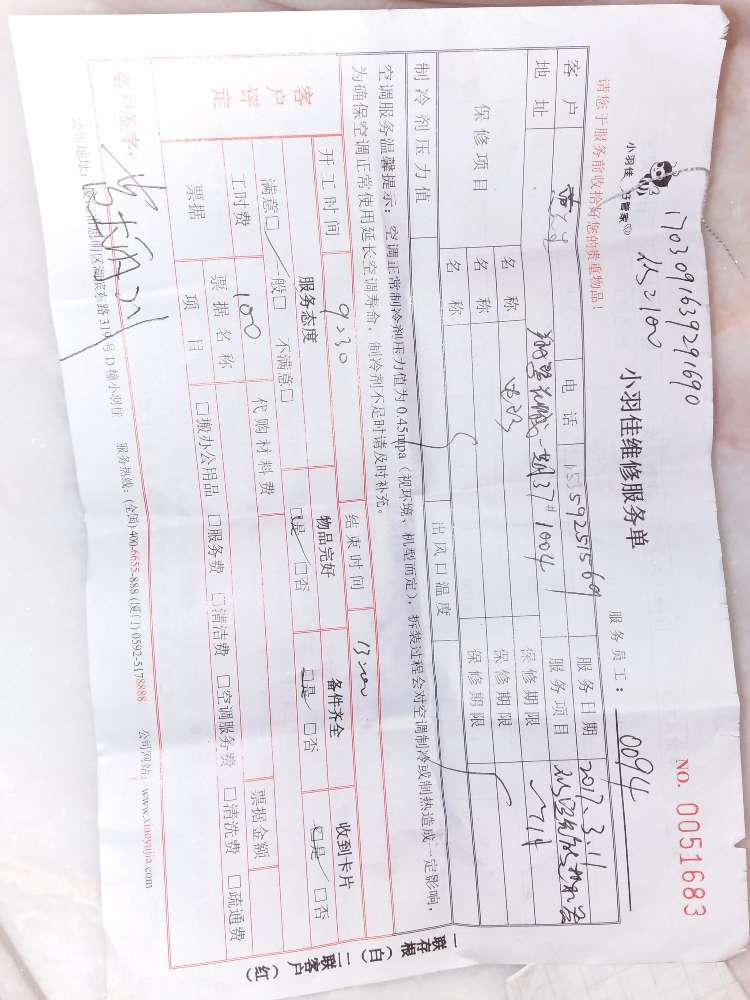 1703091639291690
小羽佳 好管家
小羽佳维修服务单
NO. 0051683
请您于服务前收拾好您的贵重物品！
服务员工： 0094
客户 电话 服务日期 2017.3.11
地址 37# 1004 服务项目
保修项目 名称 保修期限
名称 保修期限
名称 保修期限
制冷剂压力值 出风口温度
空调服务温馨提示：空调正常制冷剂压力值为0.45mpa（视环境、机型而定），拆装过程会对空调制冷或制热造成一定影响，
为确保空调正常使用延长空调寿命，制冷剂不足时请及时补充。
开工时间 9:30 结束时间 13:00
客户评定 服务态度 物品完好 备件齐全 收到卡片
满意□ 一般□ 不满意□ □是 □否 □是 □否 □是 □否
工时费 100 代购材料费
票据 票据名称 票据金额
项目 □搬办公用品 □服务费 □清洁费 □空调服务费 □清洗费 □疏通费
客户签名：
公司地址： 思明区湖滨东路319号D幢小羽佳 服务热线：(全国) 400-6655-888 (厦门) 0592-5178888 公司网站：www.xiaoyujia.com
一联存根（白） 二联客户（红）